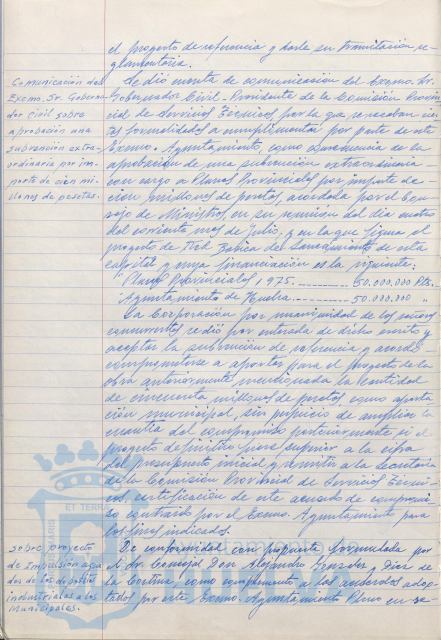 el proyecto de referencia y darle su tramitación re-
glamentaria.
Comunicación del
Excmo. Sr. Goberna-
dor civil sobre
aprobación una
subvención extra-
ordinaria por im-
porte de cien mi-
llones de pesetas.
Se dió cuenta de comunicación del Excmo. Sr.
Gobernador Civil-Presidente de la Comisión Provin-
cial de Servicios Técnicos por la que recaban cier-
tas formalidades a cumplimentar por parte de este
Excmo. Ayuntamiento, como consecuencia de la
aprobación de una subvención extraordinaria
con cargo a Planes Provinciales por importe de
cien millones de pesetas, acordada por el Con-
sejo de Ministros en su reunión del día cuatro
del corriente mes de Julio, y en la que figura el
proyecto de Red Básica de Saneamiento de esta
capital y cuya financiación es la siguiente:
"Planes Provinciales 1975 50.000.000 Pts.
Ayuntamiento de Huelva 50.000.000 "
La Corporación por unanimidad de los señores
concurrentes se dió por enterada de dicho escrito y
aceptar la subvención de referencia y acordó
comprometerse a aportar para el proyecto de la
obra anteriormente mencionada la cantidad
de cincuenta millones de pesetas, como aporta-
ción municipal, sin perjuicio de ampliar la
cuantía del compromiso posteriormente si el
proyecto definitivo fuera superior a la cifra
del presupuesto inicial y remitir a la Secretaría
de la Comisión Provincial de Servicios Técni-
cos, certificación de este acuerdo de compromi-
so contraído por el Excmo. Ayuntamiento para
los fines indicados.
sobre proyecto
de impulsión agua
desde los depósitos
industriales a los
Municipales.
De conformidad con propuesta formulada por
el Sr. Concejal Don Alejandro González y Díaz de
la Cortina, como complemento a los acuerdos adop-
tados por este Excmo. Ayuntamiento Pleno en se-